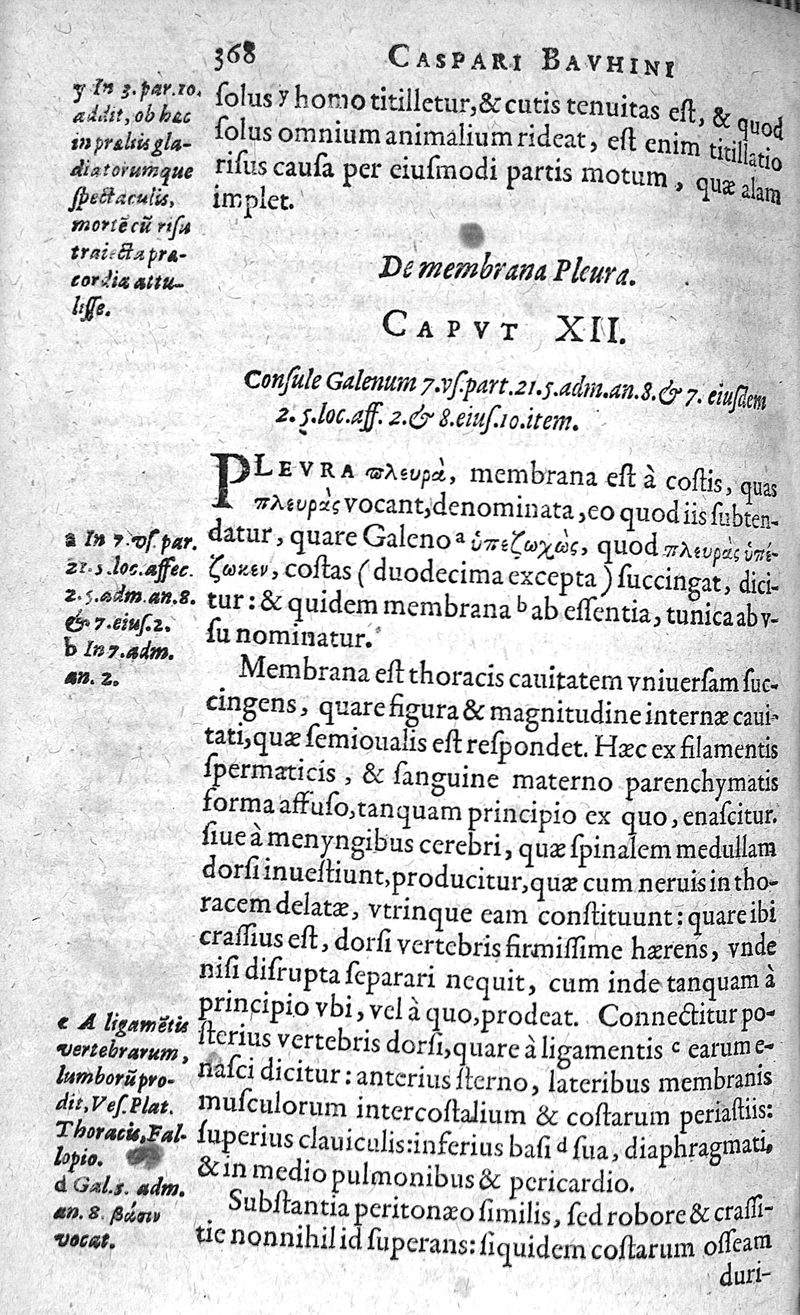 368 CASPARI BAVHINI
y In 3. par. 10.
addit, ob hæc
in præliis gla-
diatorumque
ſpectaculis,
mortē cū riſu
traiecta præ-
cordia attu-
liſſe.
ſolus y homo titilletur, & cutis tenuitas eſt, & quod
ſolus omnium animalium rideat, eſt enim titillatio
riſus cauſa per eiuſmodi partis motum, quæ alam
implet.
De membrana Pleura.
CAPVT XII.
Conſule Galenum 7. vſ. part. 21. 5. adm. an. 8. & 7. eiuſdem
2. 5. loc. aff. 2. & 8. eiuſ. 10. item.
PLEVRA πλευρὰ, membrana eſt à coſtis, quas
πλευρὰς vocant, denominata, eo quod iis ſubten-
datur, quare Galeno a ὑπεζωκὼς, quod πλευρὰς ὑπέ-
ζωκεν, coſtas (duodecima excepta) ſuccingat, dici-
tur: & quidem membrana b ab eſſentia, tunica ab v-
ſu nominatur.
a In 7. vſ. par.
21. 5. loc. affec.
2. 5. adm. an. 8.
& 7. eiuſ. 2.
b In 7. adm.
an. 2.
Membrana eſt thoracis cauitatem vniuerſam ſuc-
cingens, quare figura & magnitudine internæ caui-
tati, quæ ſemioualis eſt reſpondet. Hæc ex filamentis
ſpermaticis, & ſanguine materno parenchymatis
forma affuſo, tanquam principio ex quo, enaſcitur.
ſiue à menyngibus cerebri, quæ ſpinalem medullam
dorſi inueſtiunt, producitur, quæ cum neruis in tho-
racem delatæ, vtrinque eam conſtituunt: quare ibi
craſſius eſt, dorſi vertebris firmiſſime hærens, vnde
niſi diſrupta ſeparari nequit, cum inde tanquam à
principio vbi, vel à quo, prodeat. Connectitur po-
ſterius vertebris dorſi, quare à ligamentis c earum e-
naſci dicitur: anterius ſterno, lateribus membranis
muſculorum intercoſtalium & coſtarum periaſtiis:
ſuperius clauiculis: inferius baſi d ſua, diaphragmati,
& in medio pulmonibus & pericardio.
c A ligamētis
vertebrarum,
lumborū pro-
dit, Veſ. Plat.
Thoracis, Fal-
lopio.
d Gal. 5. adm.
an. 8. βάσιν
vocat.
Subſtantia peritonæo ſimilis, ſed robore & craſſi-
tie nonnihil id ſuperans: ſiquidem coſtarum oſſeam
duri-